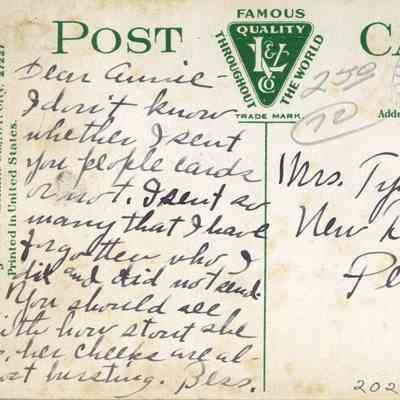 POST CA
FAMOUS
QUALITY
THROUGHOUT THE WORLD
L & Co
TRADE MARK
Addre
259
72
27227
Printed in United States.
Dear Annie -
I don't know
whether I sent
you people cards
or not. I sent so
many that I have
forgotten who I
did and did not send.
You should see
with how stout she
, her cheeks are al-
ost bursting. Bess.
Mrs. Ty
New
Pe
202